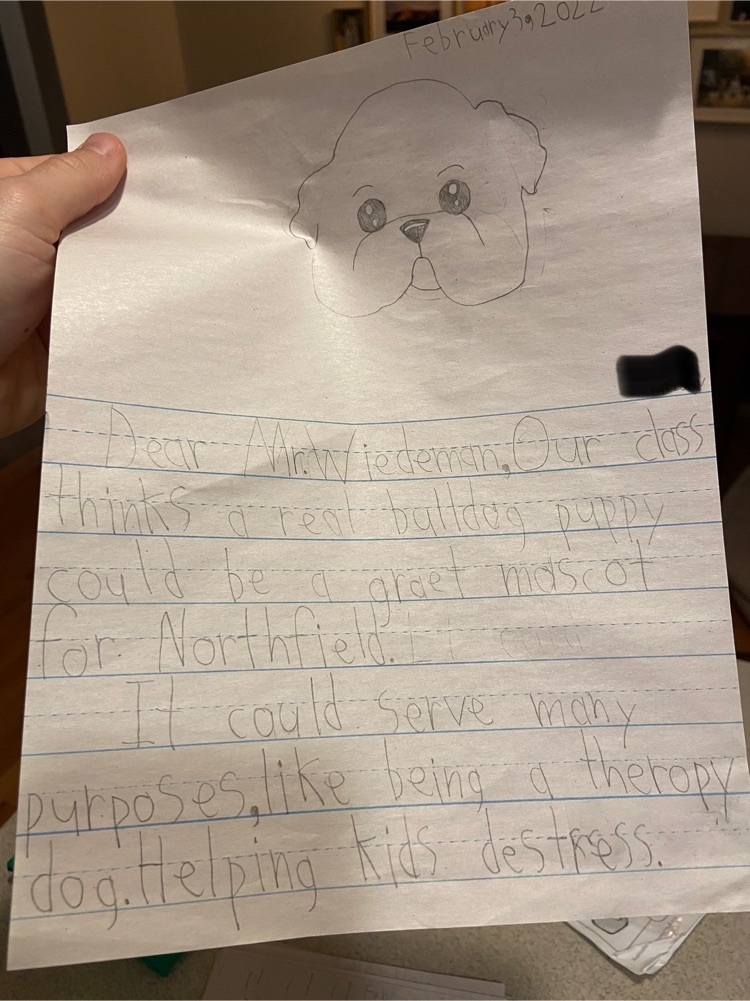 February 3, 2022
Dear Mr. Wiedeman, Our class
thinks a real bulldog puppy
could be a graet mascot
for Northfield.
It could serve many
purposes, like being a theropy
dog. Helping kids destress.